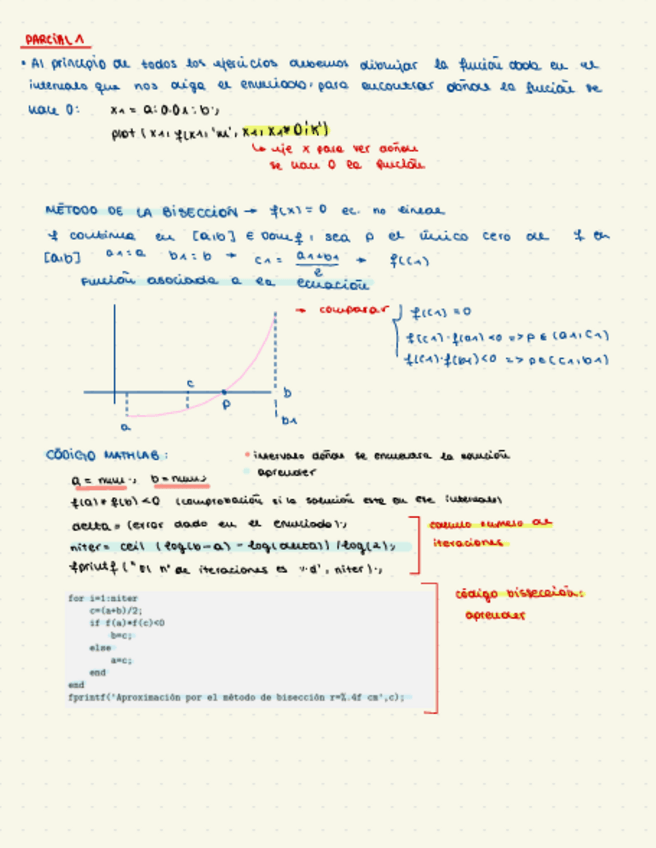 PARCIAL 1
• Al principio de todos los ejercicios debemos dibujar la función dada en el
intervalo que nos diga el enunciado, para encontrar dónde la función se
hace 0: x1 = a:0.01:b;
plot (x1, f(x1), 'm', x1, x1*0,'k')
↳ eje x para ver dónde
se hace 0 la función
MÉTODO DE LA BISECCIÓN → f(x)=0 ec. no lineal
f continua en [a,b] ∈ Dom f, sea p el único cero de f en
[a,b] a1=a b1=b → c1 = (a1+b1)/2 → f(c1)
Función asociada a la ecuación
→ comparar
f(c1)=0
f(c1)·f(a1)<0 => p∈(a1,c1)
f(c1)·f(b1)<0 => p∈(c1,b1)
c
b
p
a
b1
CÓDIGO MATHLAB:
• intervalo dónde se encuentra la solución
• aprender
a = num; b = num;
f(a)*f(b)<0 (comprobación si la solución está en ese intervalo)
delta = (error dado en el enunciado);
niter= ceil (log(b-a) - log(delta)) /log(2);
fprintf ("El nº de iteraciones es %d", niter);
cálculo número de
iteraciones
for i=1:niter
c=(a+b)/2;
if f(a)*f(c)<0
b=c;
else
a=c;
end
end
fprintf('Aproximación por el método de bisección r=%.4f cm',c);
código bisección:
aprender